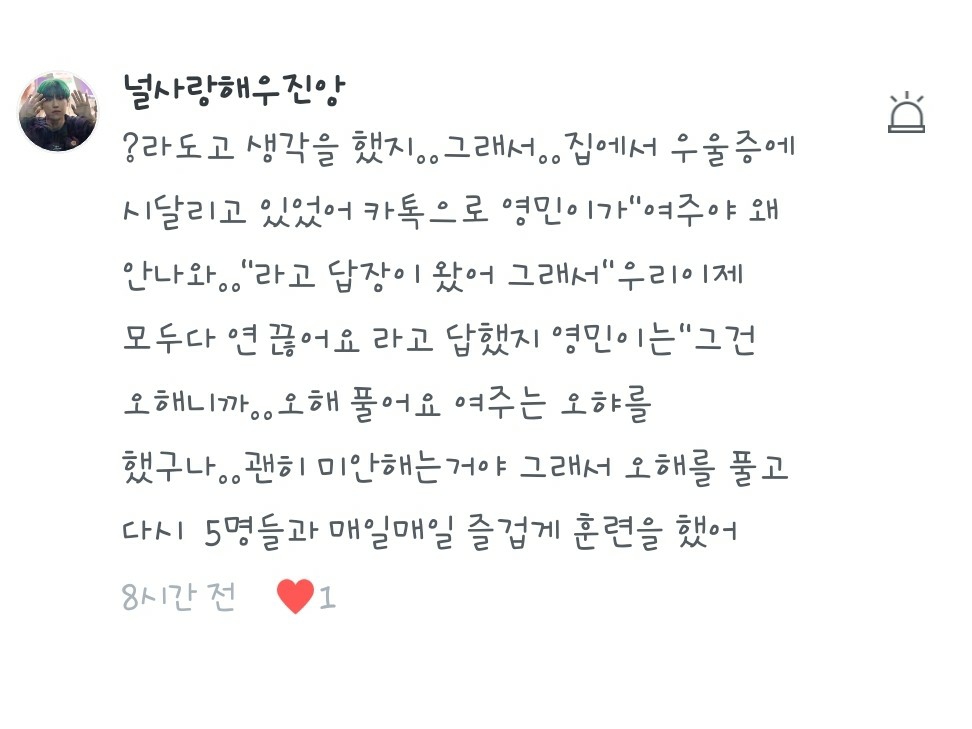 널사랑해우진앙
?라도고 생각을 했지..그래서..집에서 우울증에
시달리고 있었어 카톡으로 영민이가"여주야 왜
안나와.."라고 답장이 왔어 그래서"우리이제
모두다 연 끊어요 라고 답했지 영민이는"그건
오해니까..오해 풀어요 여주는 오햐를
했구나..괜히 미안해는거야 그래서 오해를 풀고
다시 5명들과 매일매일 즐겁게 훈련을 했어
8시간 전 1